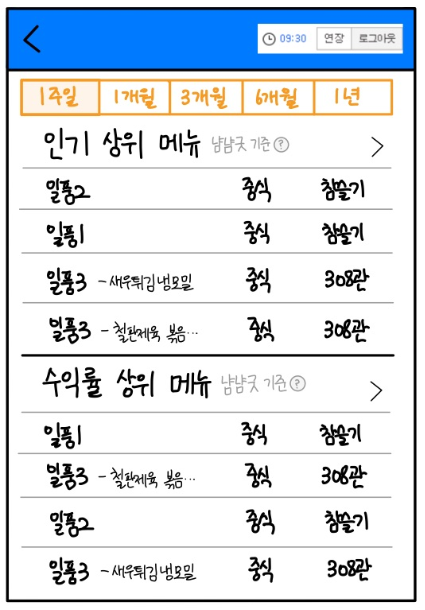 09:30 연장 로그아웃
1주일 1개월 3개월 6개월 1년
인기 상위 메뉴 냠냠굿 기준 ?
일품2 중식 참슬기
일품1 중식 참슬기
일품3 - 새우튀김냉모밀 중식 308관
일품3 - 철판제육 볶음… 중식 308관
수익률 상위 메뉴 냠냠굿 기준 ?
일품1 중식 참슬기
일품3 - 철판제육 볶음… 중식 308관
일품2 중식 참슬기
일품3 - 새우튀김냉모밀 중식 308관